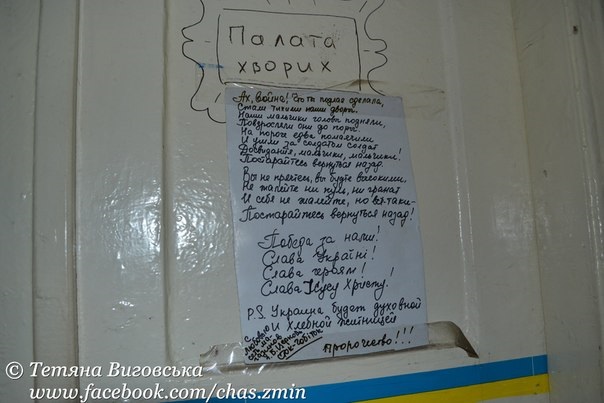 Палата
хворих
Ах, война! Что ты подлая сделала,
Стали тихими наши дворы.
Наши мальчики головы подняли,
Повзрослели они до поры.
На пороге едва помаячили
И ушли за солдатом солдат
Досвидания, мальчики, мальчики!
Постарайтесь вернуться назад.
Вы не прячтесь, вы будте высокими.
Не жалейте ни пуль, ни гранат
И себя не жалейте, но всё-таки-
Постарайтесь вернуться назад!
Победа за нами!
Слава Україні!
Слава героям!
Слава Ісусу Христу!
PS Украина будет духовной
И Хлебной житницей
С любовью
пророчество!!!
© Тетяна Виговська
www.facebook.com/chas.zmin